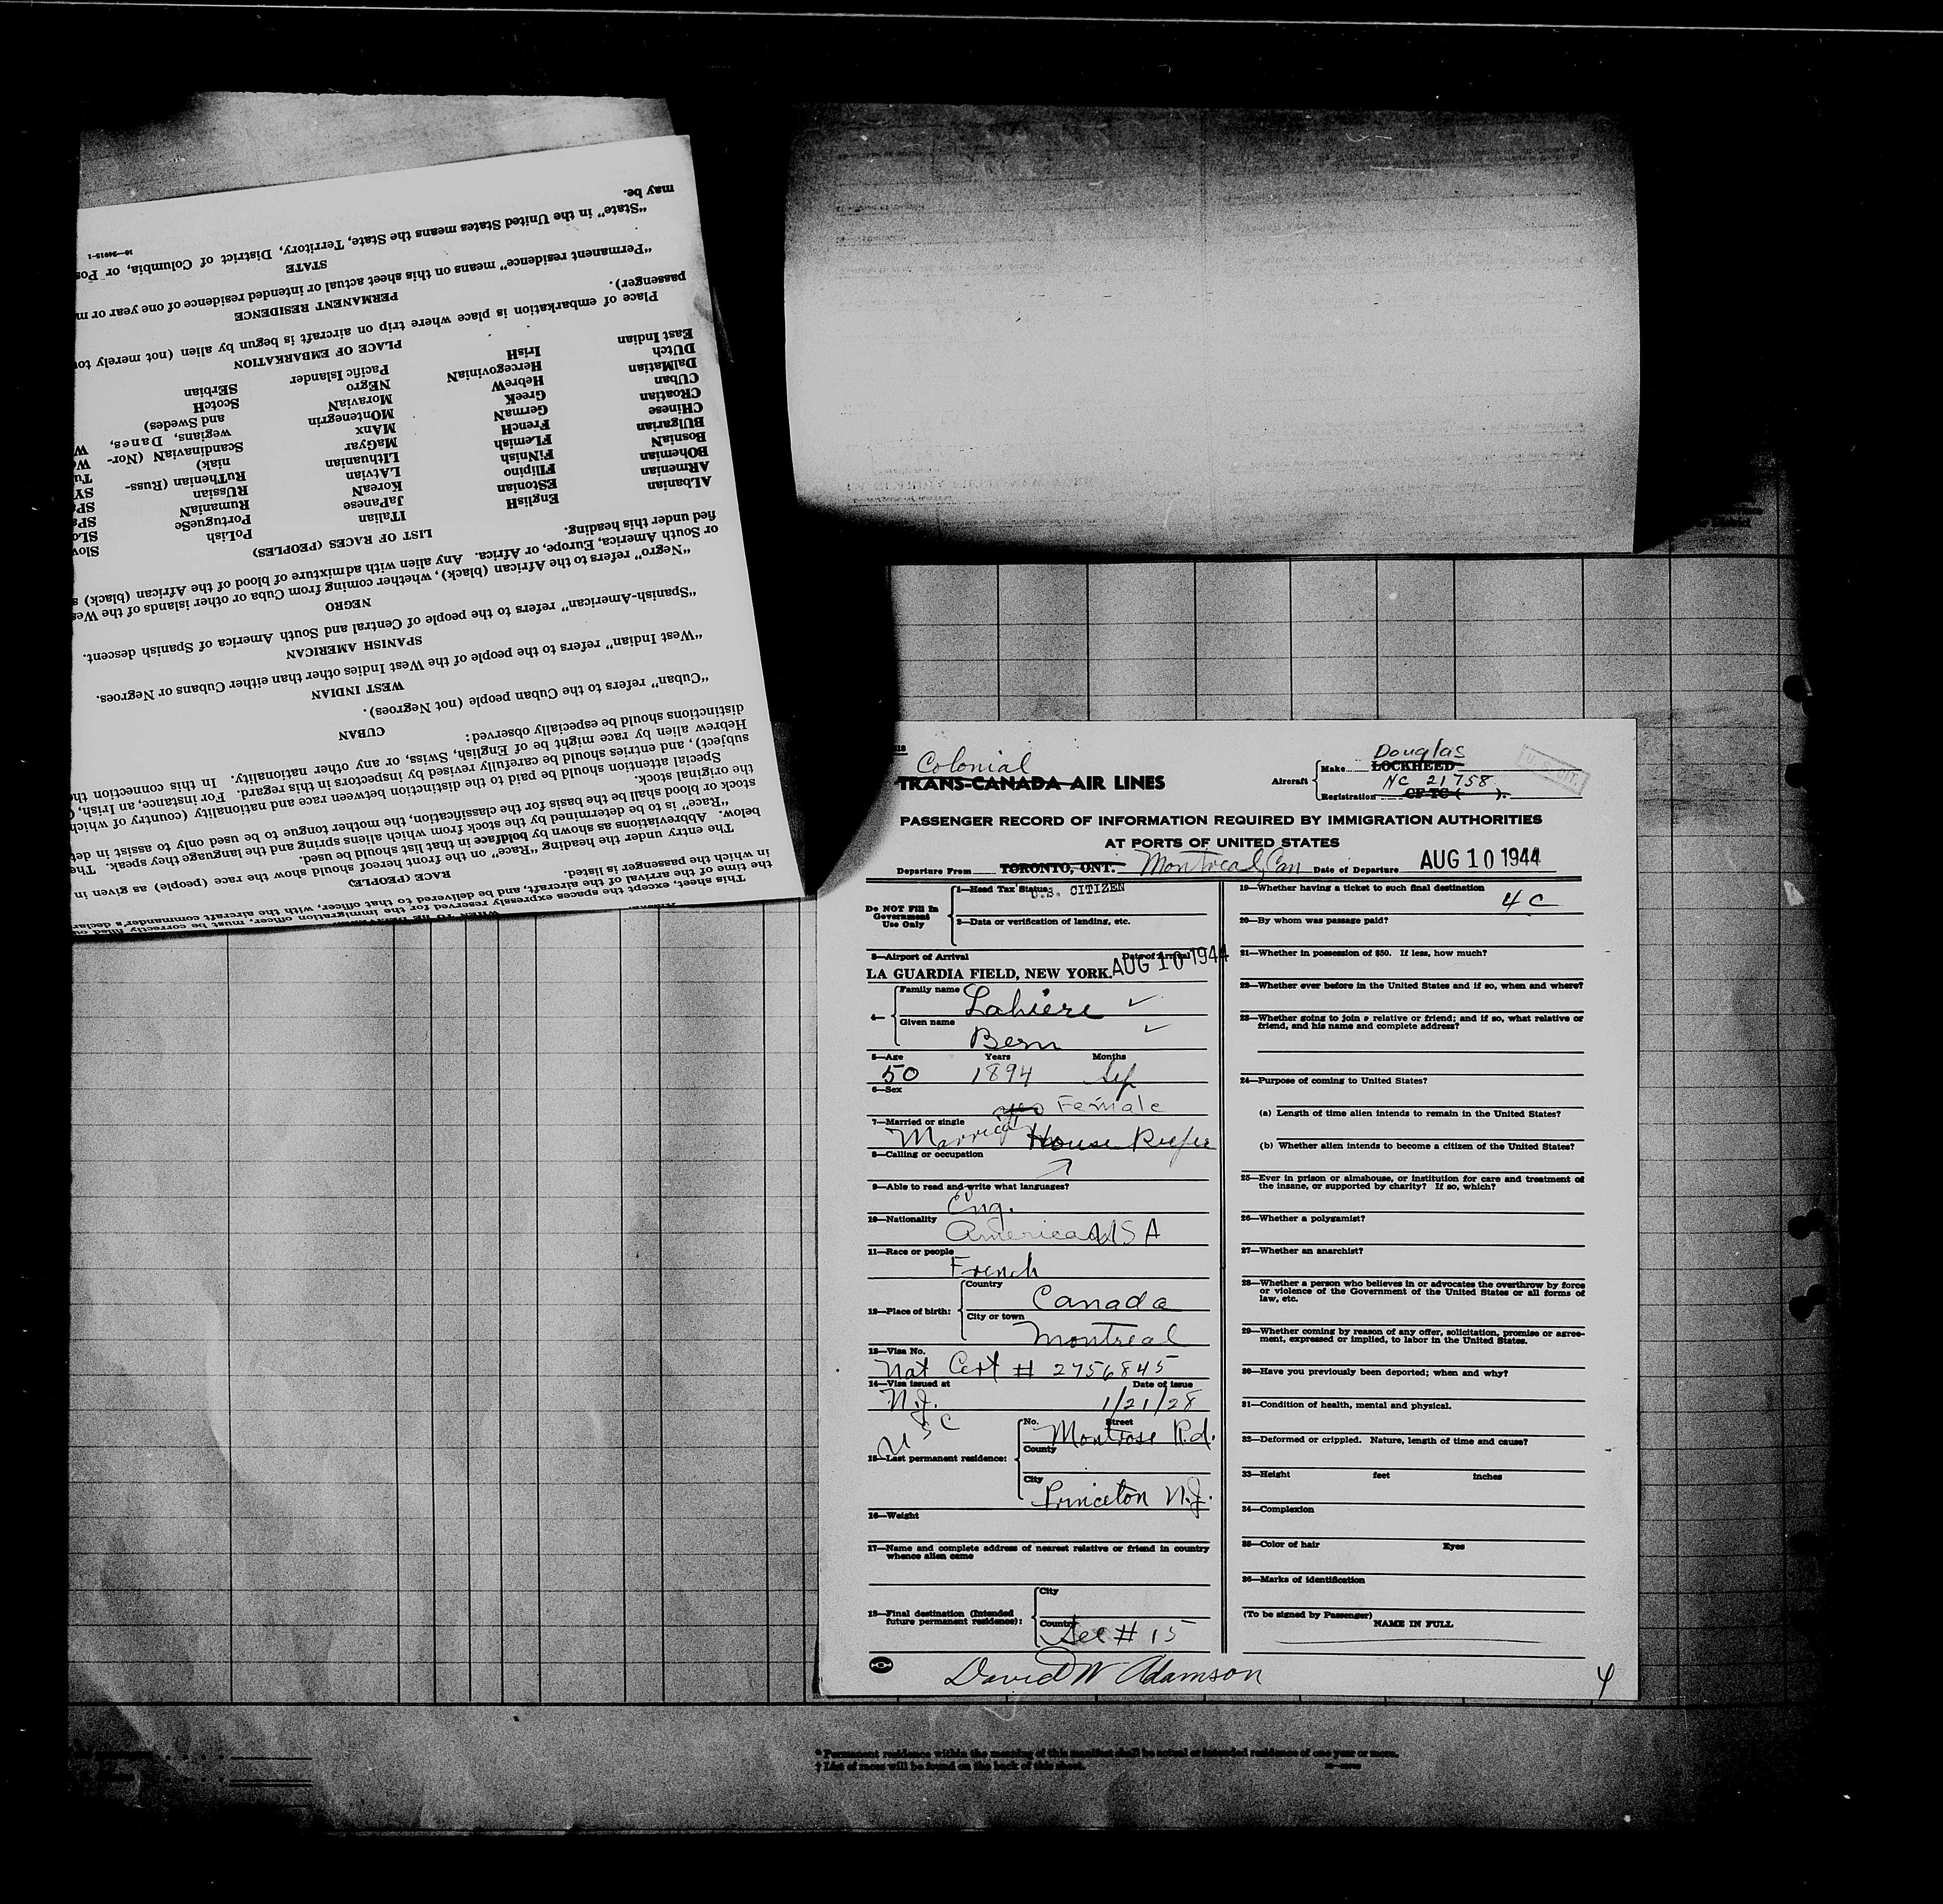 may be.
"State" in the United States means the State, Territory, District of Columbia, or
16—24915-1
STATE
"Permanent residence" means on this sheet actual or intended residence of one year or
PERMANENT RESIDENCE
passenger).
Place of embarkation is place where trip on aircraft is begun by alien (not merely
PLACE OF EMBARKATION
East Indian
DUtch IrisH
DalMatian HercegoviniaN Pacific Islander SErbian
CUban HebreW NEgro ScotcH
CRoatian GreeK MoraviaN and Swedes)
CHinese GermaN MOntenegrin wegians, Danes,
BUlgarian FrencH MAnx ScandinaviaN (Nor-
BosniaN FLemish MaGyar niak)
BOhemian FiNnish LIthuanian RuThenian (Russ-
ARmenian FIlipino LAtvian RUssian
ALbanian EStonian KoreaN RumaniaN
EnglisH JaPanese PortugueSe
ITalian PoLish
LIST OF RACES (PEOPLES)
fied under this heading.
or South America, Europe, or Africa. Any alien with admixture of blood of the African (black)
"Negro" refers to the African (black), whether coming from Cuba or other islands of the
NEGRO
"Spanish-American" refers to the people of Central and South America of Spanish descent.
SPANISH AMERICAN
"West Indian" refers to the people of the West Indies other than either Cubans or Negroes.
WEST INDIAN
"Cuban" refers to the Cuban people (not Negroes).
CUBAN
distinctions should be especially observed:
Hebrew alien by race might be of English, Swiss, or any other nationality. In this connection
subject), and entries should be carefully revised by inspectors in this regard. For instance, an Irish,
Special attention should be paid to the distinction between race and nationality (country of which
the original stock.
stock or blood shall be the basis for the classification, the mother tongue to be used only to assist in
"Race" is to be determined by the stock from which aliens spring and the language they speak. The
below. Abbreviations as shown by boldface in that list should be used.
The entry under the heading "Race" on the front hereof should show the race (people) as given in
RACE (PEOPLE)
in which the passenger is listed.
the time of the arrival of the aircraft, and be delivered to that officer, with the aircraft commander's
This sheet, except the spaces expressly reserved for the immigration officer, must be correctly filled
Colonial
TRANS-CANADA AIR LINES
Aircraft Make Douglas LOCKHEED
NC 21758
Registration CF-TC ( ).
U.S. CIT.
PASSENGER RECORD OF INFORMATION REQUIRED BY IMMIGRATION AUTHORITIES
AT PORTS OF UNITED STATES
Departure From TORONTO, ONT. Montreal, Can Date of Departure AUG 10 1944
Do NOT Fill In Government Use Only
1—Head Tax Status: U.S. CITIZEN
2—Data or verification of landing, etc.
3—Airport of Arrival Date of Arrival
LA GUARDIA FIELD, NEW YORK. AUG 10 1944
4—
Family name Lahiere
Given name Bern
5—Age Years Months
50 1894 Sep
6—Sex
Female
7—Married or single
Married House Keeper
8—Calling or occupation
9—Able to read and write what languages?
Eng.
10—Nationality
American USA
11—Race or people
French
12—Place of birth:
Country Canada
City or town Montreal
13—Visa No.
Nat Cert # 2756845
14—Visa issued at Date of issue
N.J. 1/21/28
U S C
15—Last permanent residence:
No. Street
Montrose Rd.
County
City
Princeton N.J.
16—Weight
17—Name and complete address of nearest relative or friend in country
whence alien came
18—Final destination (Intended
future permanent residence):
City
Country
See # 15
David W Adamson
19—Whether having a ticket to such final destination
4 C
20—By whom was passage paid?
21—Whether in possession of $50. If less, how much?
22—Whether ever before in the United States and if so, when and where?
23—Whether going to join a relative or friend; and if so, what relative or
friend, and his name and complete address?
24—Purpose of coming to United States?
(a) Length of time alien intends to remain in the United States?
(b) Whether alien intends to become a citizen of the United States?
25—Ever in prison or almshouse, or institution for care and treatment of
the insane, or supported by charity? If so, which?
26—Whether a polygamist?
27—Whether an anarchist?
28—Whether a person who believes in or advocates the overthrow by force
or violence of the Government of the United States or all forms of
law, etc.
29—Whether coming by reason of any offer, solicitation, promise or agree-
ment, expressed or implied, to labor in the United States.
30—Have you previously been deported; when and why?
31—Condition of health, mental and physical.
32—Deformed or crippled. Nature, length of time and cause?
33—Height feet inches
34—Complexion
35—Color of hair Eyes
36—Marks of identification
(To be signed by Passenger)
NAME IN FULL
4
* Permanent residence within the meaning of this manifest shall be actual or intended residence of one year or more.
† List of races will be found on the back of this sheet.